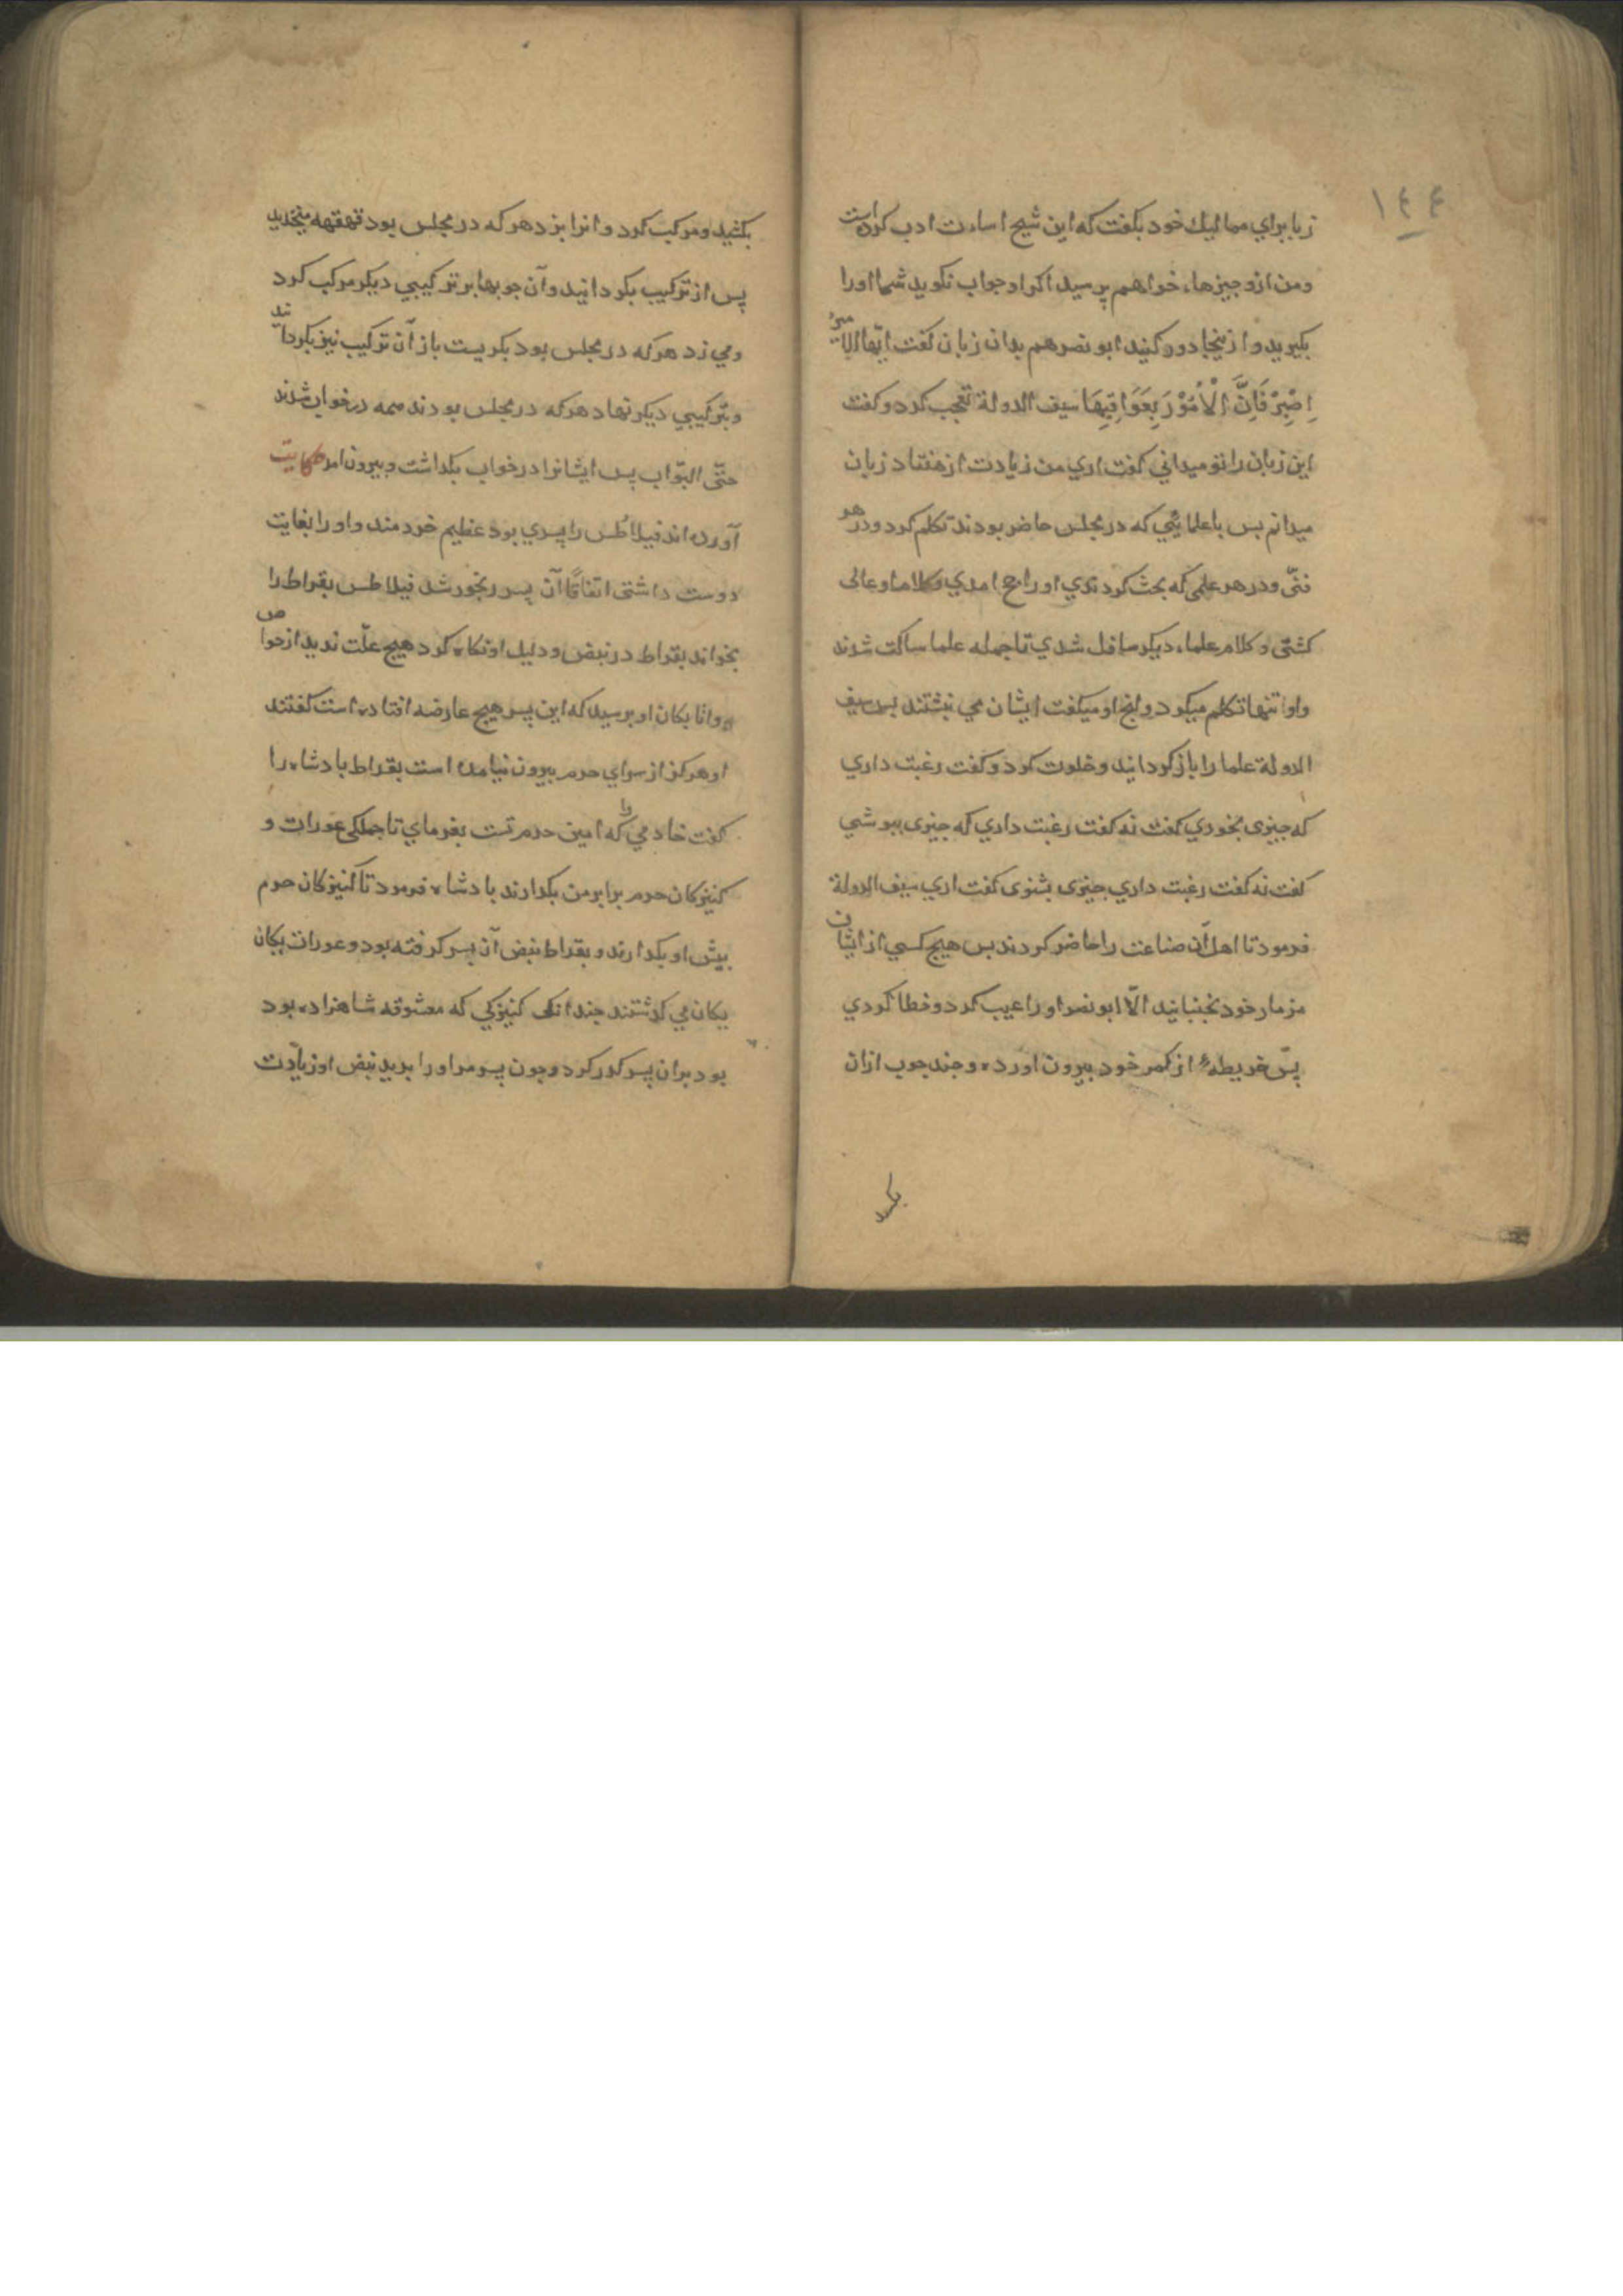 ١٤٤
زبا برای ممالیك خود بکفت که این شیخ اساءت ادب کرده است
ومن ازو جیزهاء خواهم پرسید اکر او جواب نکوید شما اورا
بکیرید و از ینجا دور کنید ابو نصر هم بدان زبان کفت ایّها الامیرُ
اِصْبِرْ فَاِنَّ الْاُمُوْرَ بِعَوَاقِبِهَا سیف الدولة تعجب کرد و کفت
این زبان را تو میدانی کفت اری من زیادت از هفتاد زبان
میدانم بس با علمایی که در مجلس حاضر بودند تکلم کرد و در هر
فنّی و در هر علمی که بحث کردندی او راجح امدی و کلام او عالی
کشتی و کلام علماء دیکر سافل شدی تا جمله علما ساکت شدند
واو تنها تکلم میکرد و انج او میکفت ایشان می نبشتند بس سیف
الدولة علما را باز کردانید و خلوت کرد و کفت رغبت داری
که جیزی بخوری کفت نه کفت رغبت داری که جیزی بپوشی
کفت نه کفت رغبت داری جیزی بشنوی کفت اری سیف الدولة
فرمود تا اهل آن صناعت را حاضر کردند بس هیج کسی از ایشان
مزمار خود نجنبانید الّا ابو نصر اورا عیب کرد و خطا کردی
پس خریطهٔ از کمر خود بیرون اورده و جند جوب ازان
بکشید
بکشید و مرکب کرد و انرا بزد هر که در مجلس بود قهقهه بخندید
پس از ترکیب بکردانید و آن جوبها بر ترکیبی دیکر مرکب کرد
ومی زد هر که در مجلس بود بکریست باز آن ترکیب نیز بکردانید
وبترکیبی دیکر نهاد هر که در مجلس بودند همه در خواب شدند
حتّی البوّاب پس ایشانرا در خواب بکداشت و بیرون امد حکایت
آورده اند فیلاطُس را پسری بود عظیم خردمند و او را بغایت
دوست داشتی اتفاقًا آن پسر رنجور شد فیلاطس بقراط را
بخواند بقراط در نبض و دلیل او نکاه کرد هیج علّت ندید از خواص
و واثا بکان او برسید که این پسر هیج عارضه افتاده است کفتند
او هرکز از سرای حرم بیرون نیامده است بقراط بادشاه را
کفت خادمی را که امین حرم تست بفرمای تا جملکی عورات و
کنیزکان حرم برابر من بکدارند بادشاه فرمود تا کنیزکان حرم
بیش او بکدارند و بقراط نبض آن بسر کرفته بود و عورات یکان
یکان می کذشتند جندانکی کنیزکی که معشوقه شاهزاده بود
بود بران پسر کدر کرد و جون پسر مر او را بدید نبض او زیادت